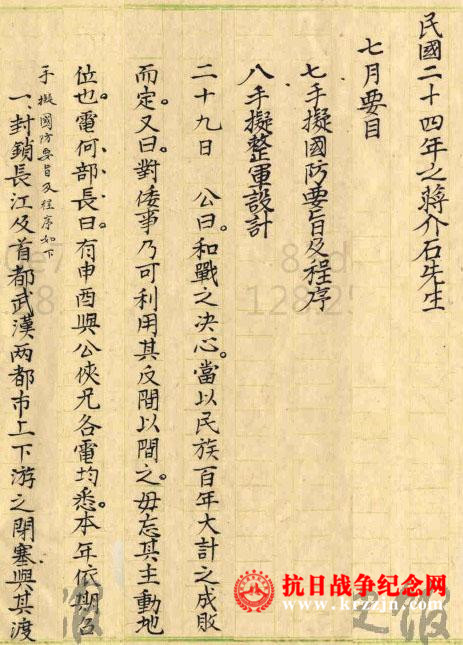 民國二十四年之蔣介石先生
七月要目
七手擬國防要旨及程序
八手擬整軍設計
二十九日 公曰。和戰之決心。當以民族百年大計之成敗
而定。又曰。對倭事乃可利用其反間以間之。毋忘其主動地
位也。電何部長曰。有申酉與公俠兄各電均悉。本年依期召
手擬國防要旨及程序如下
一、封鎖長江及首都武漢两都市上下游之閉塞與其渡
抗日战争纪念网
www.krzzjn.com